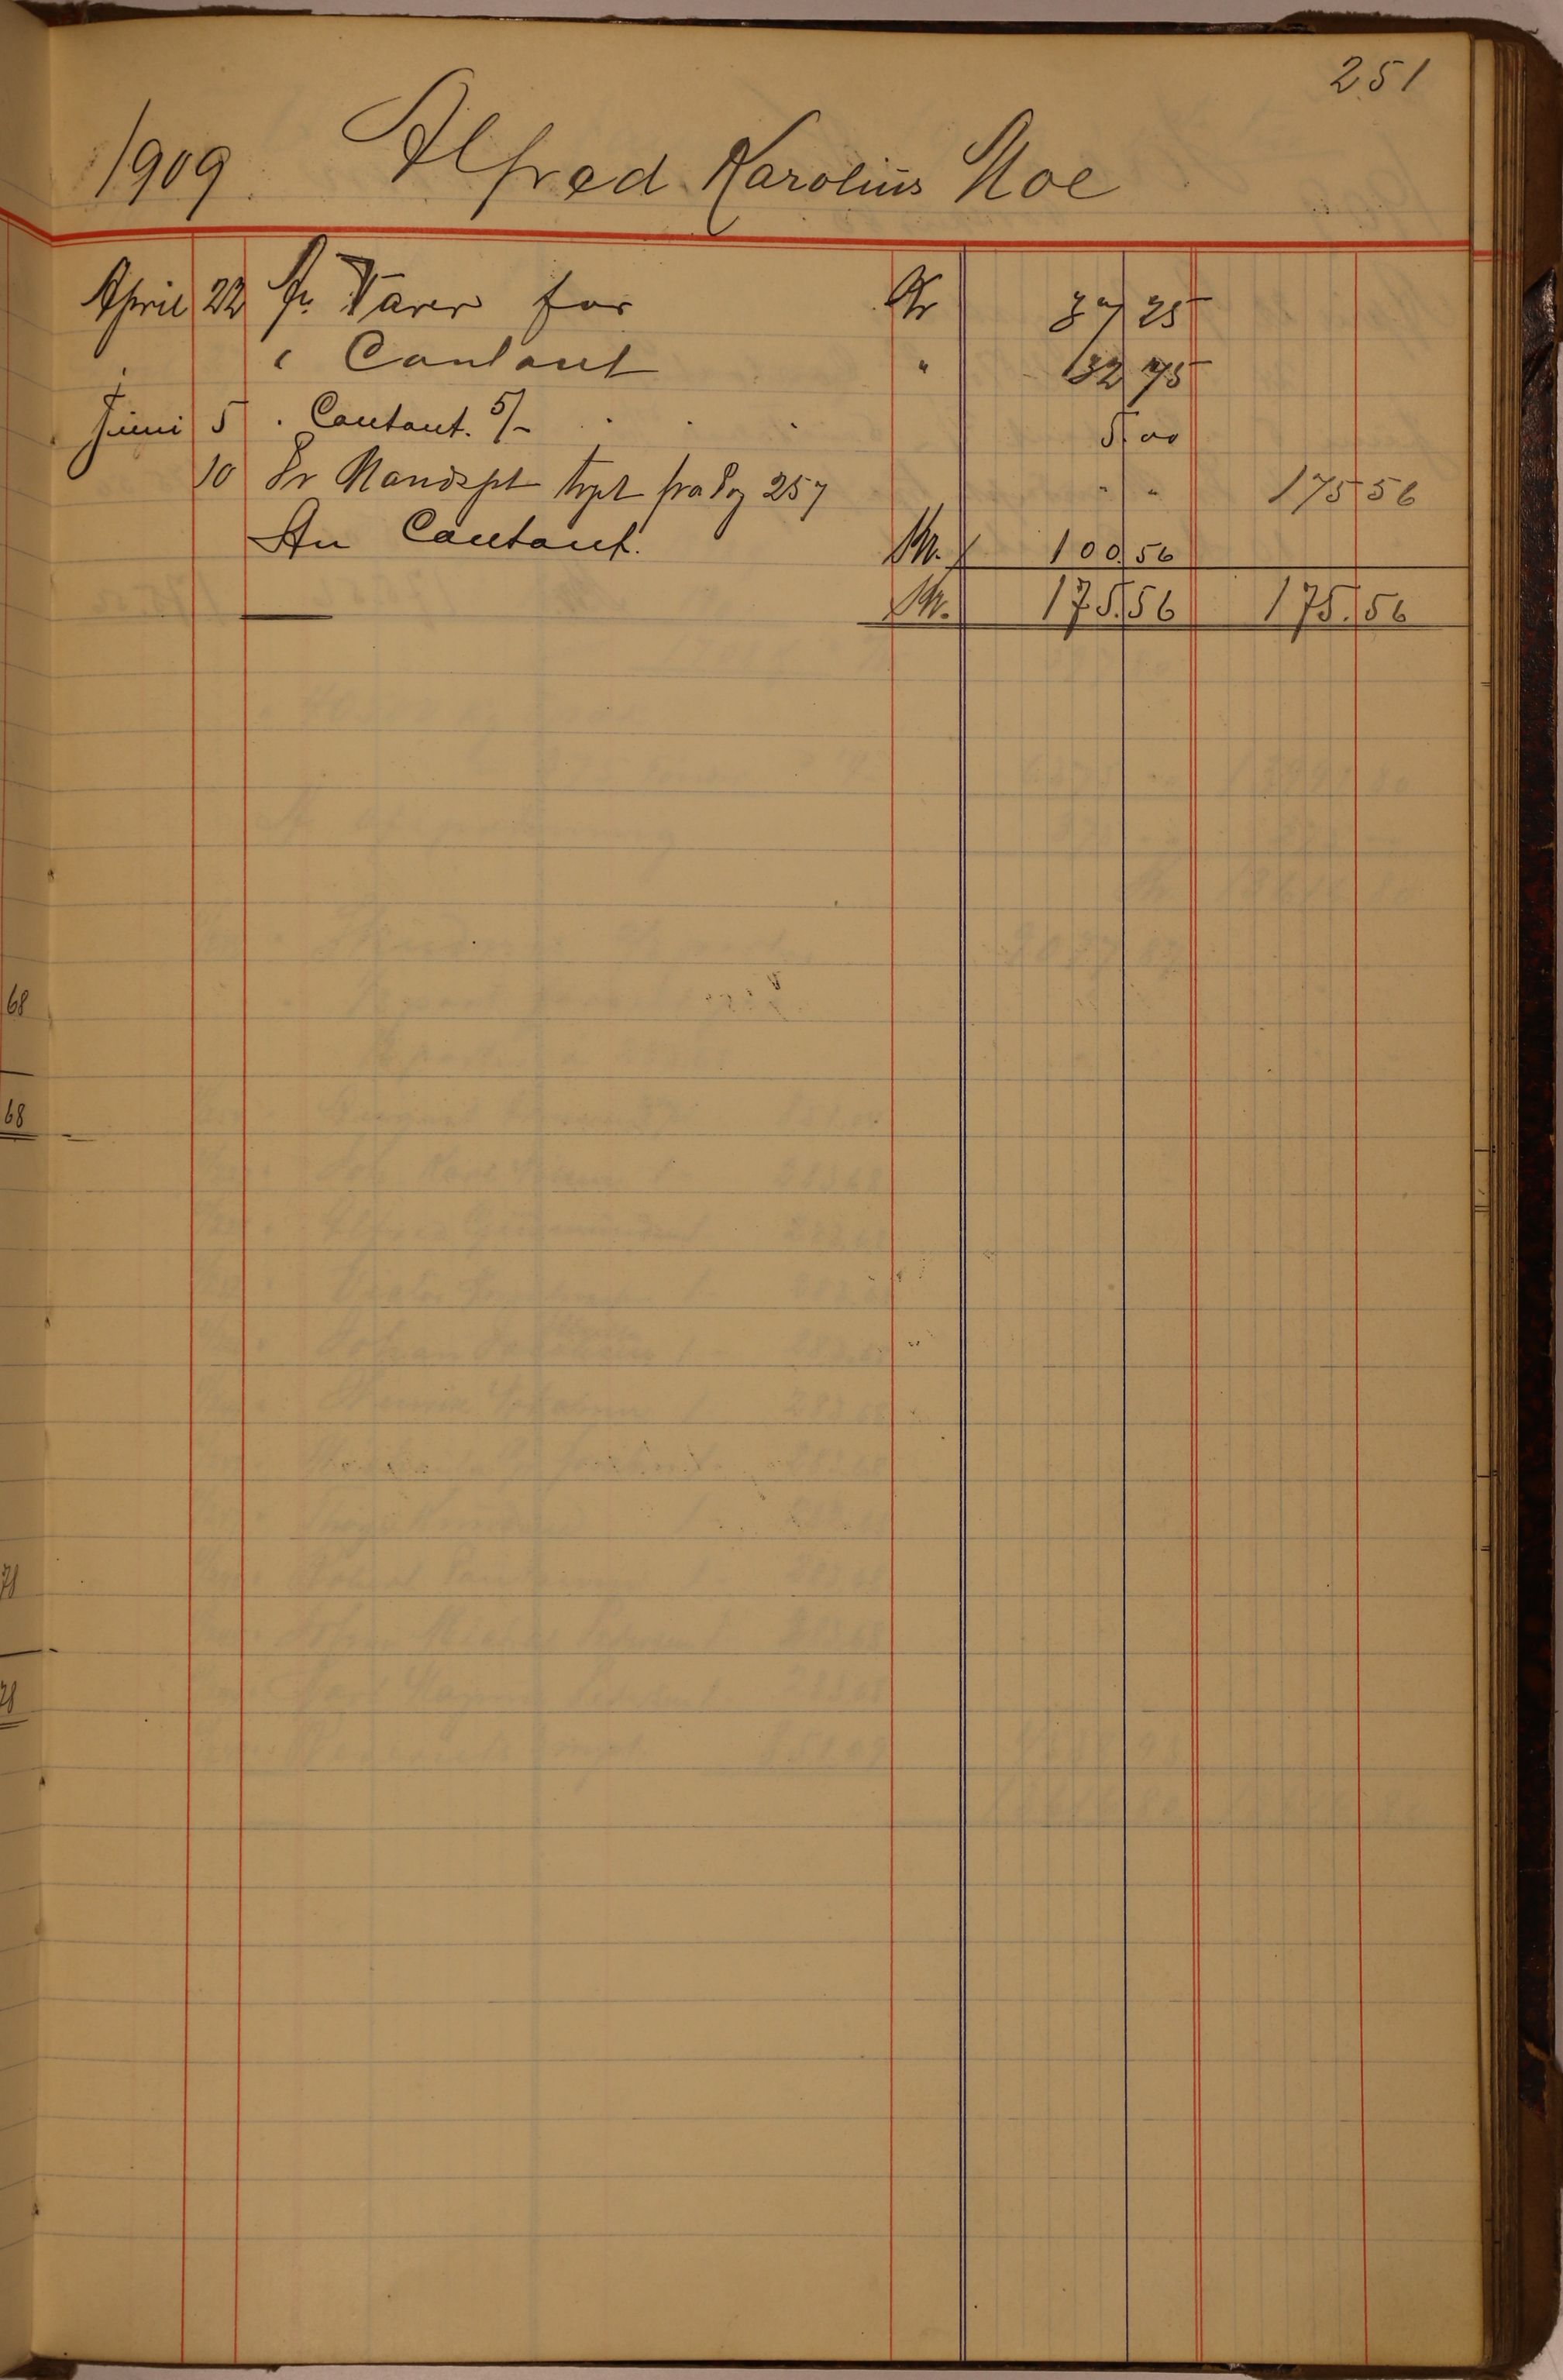 251
1909 Alfred Karolius Moe
April 22 An Varer for Kr 37 25
" Contant " 32 75
Juni 5 " Contant. 5/- 5.00
10 Pr Mandspt trpt fra Pg 257 " " 175 56
An Contant. Kr. 100.56
Kr. 175.56 175.56
68
68
78
78